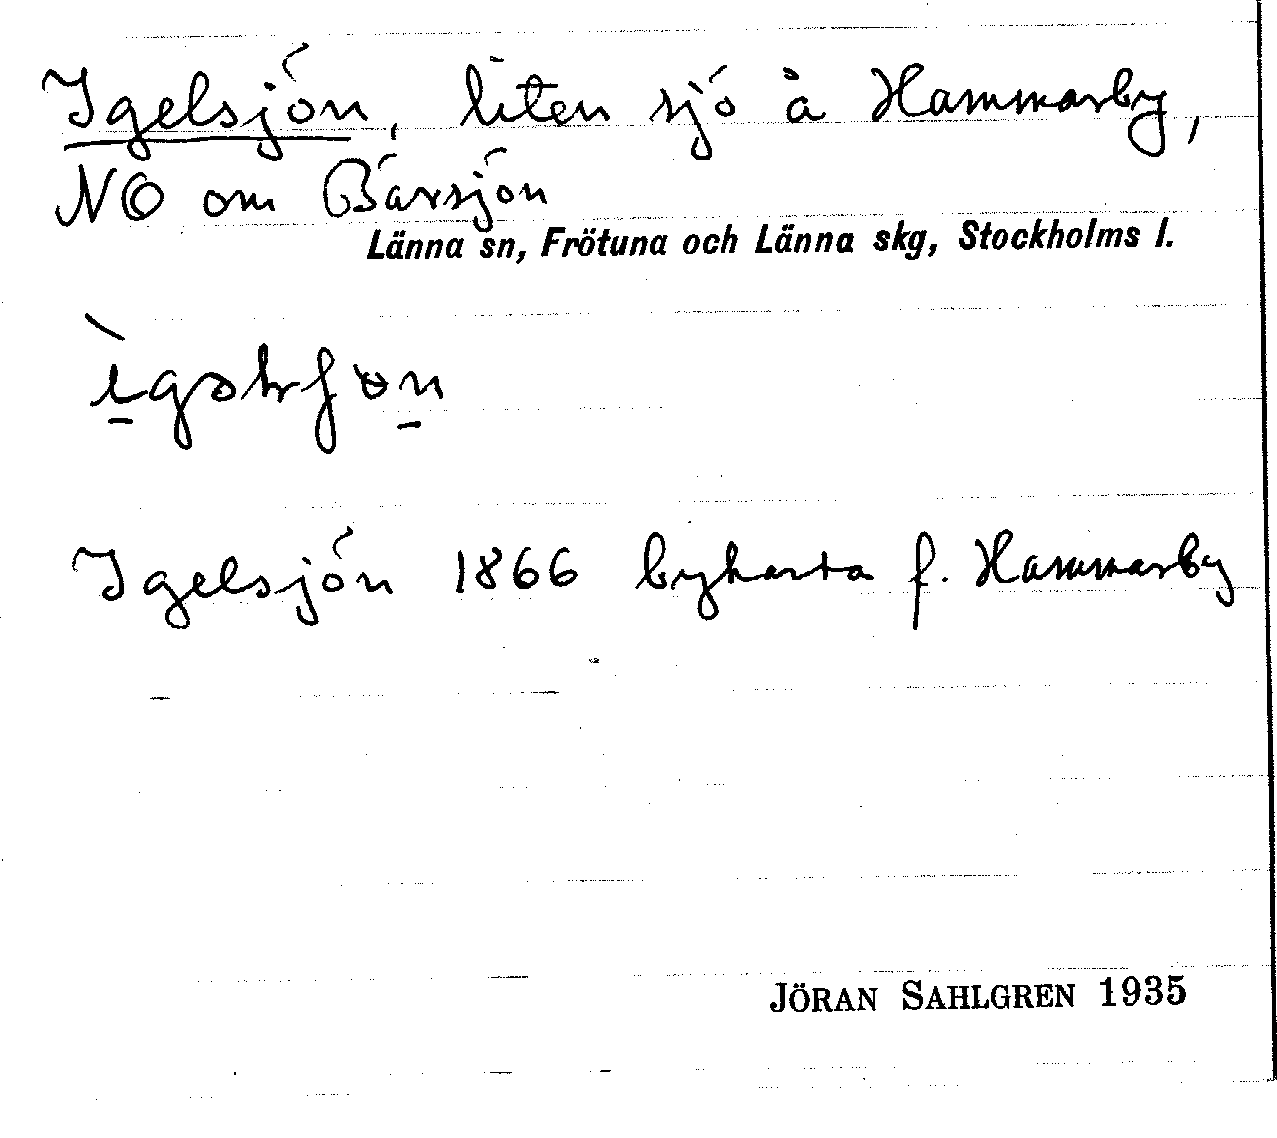 Igelsjön, liten sjö å Hammarby,
NO om Bärsjön
Länna sn, Frötuna och Länna skg, Stockholms l.
Igelsjön 1866 bykarta f. Hammarby
JÖRAN SAHLGREN 1935